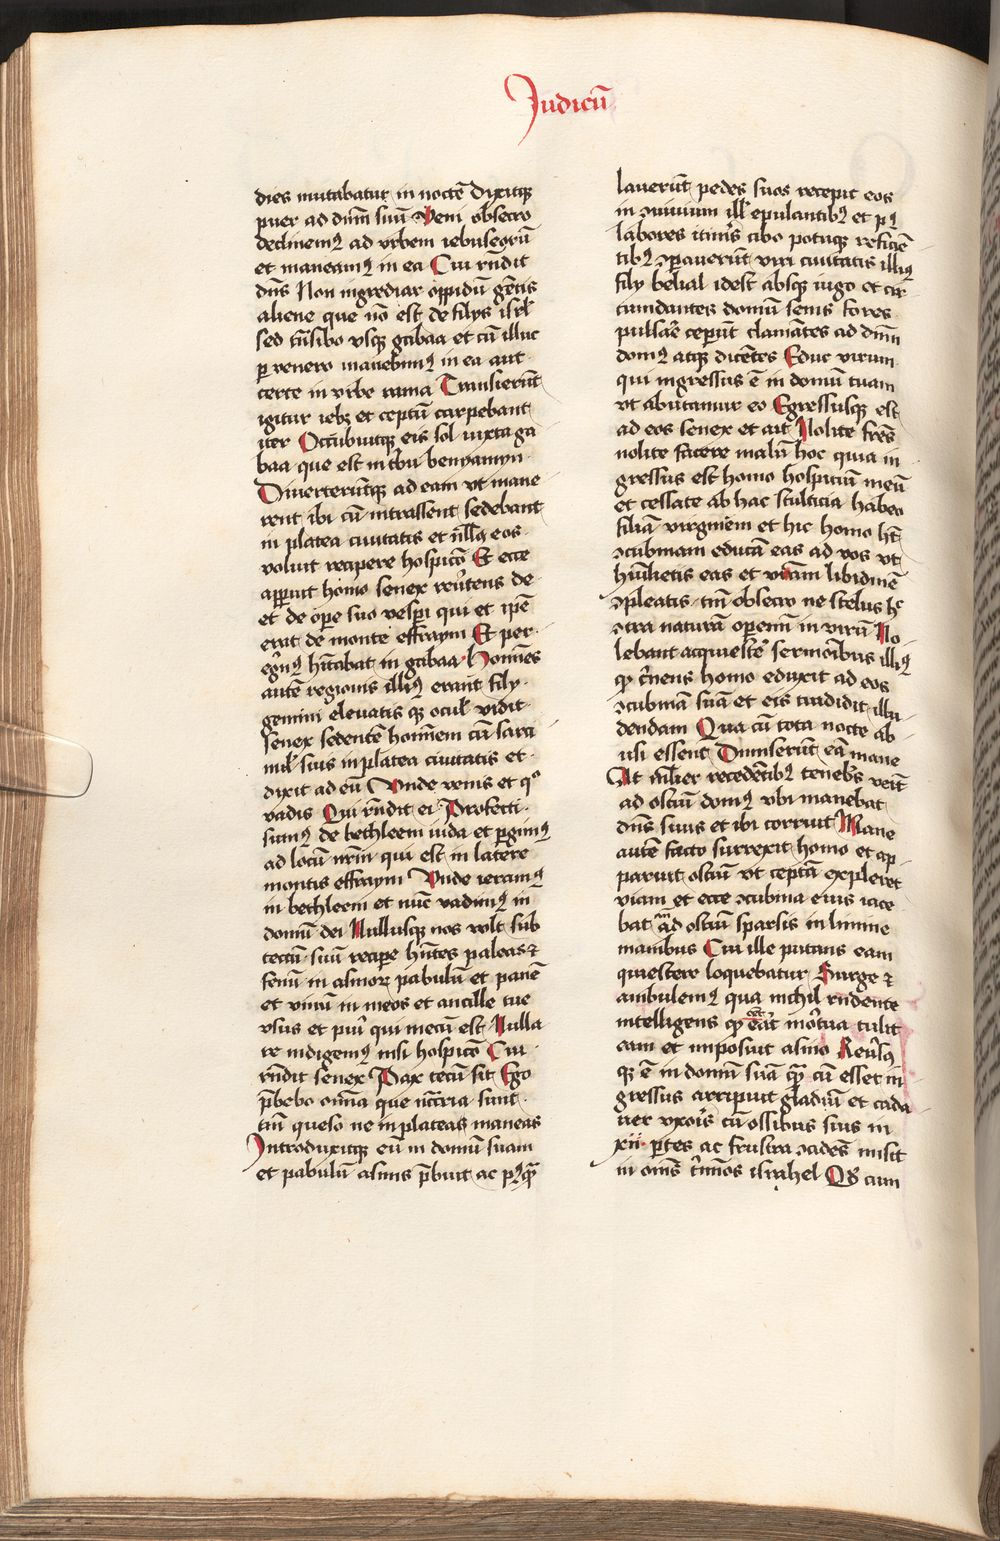 Judicū
dies mutabatur in noctē Dixitqꝫ
puer ad dn̄m suū Veni obsecro
declinemꝰ ad vrbem iebuseorū
et maneamꝰ in ea Cui rn̄dit
dn̄s Non ingrediar oppidū gētis
aliene que nō est de filys isrł
sed trāsibo vsqꝫ gabaa et cū illuc
ꝑvenero manebimꝰ in ea aut
certe in vrbe rama Transierūt
igitur iebꝫ et ceptū carpebant
iter Occubuitqꝫ eis sol iuxta ga
baa que est in tbu benyamyn
Diverterūtqꝫ ad eam vt mane
rent ibi cū intrassent sedebant
in platea ciuitatis et nll̄s eos
voluit recipere hospicō Et ecce
apparuit homo senex reuertens de
et de oꝑe suo vesꝑi qui et ip̄e
erat de monte effraym Et per
egrꝰ hītabat in gabaa Homīes
autē regionis illiꝰ erant fily
gemini eleuatis qꝫ ocuł vidit
senex sedentē hominem cū sarci
nuł suis in platea ciuitatis et
dixit ad eū Vnde venis et qͦ
vadis Qui rn̄dit ei Profecti
sumꝰ de bethleem iuda et ꝑgimꝰ
ad locū nr̄m qui est in latere
montis effraym Vnde ieramꝰ
in bethleem et nūc vadimꝰ in
domū dei Nullusqꝫ nos vult sub
tectū suū recipe hn̄tes paleas ⁊
fenū in asinoꝝ pabulū et panē
et vinū in meos et ancille tue
vsus et pu'i qui mecū est Nulla
re indigemꝰ nisi hospicō Cui
rn̄dit senex Pax tecū sit Ego
p̄bebo omīa que ncc̄ria sunt
tm̄ queso ne in plateas maneas
Introduxitqꝫ eū in domū suam
et pabulū asinis p̄buit ac pꝰqꝫ
lauerūt pedes suos recepit eos
in ꝯuiuium ill' epulantibꝰ et pꝰ
labores itin'is cibo potuqꝫ reficiē
tibꝰ ꝯꝑauerūt viri ciuitatis illiꝰ
fily belial idest absqꝫ iugo et cir
cumdantes domū senis fores
pulsare ceperūt clamātes ad dn̄m
domꝰ atqꝫ dicētes Educ virum
qui ingressus ē in domū tuam
vt abutamur eo Egressusqꝫ est
ad eos senex et ait Nolite frēs
nolite facere malū hoc quia in
gressus est homo hospiciū meū
et cessate ab hac stulticia habeo
filiā virginem et hic homo hꝫ
ꝯcubinam educā eas ad vos vt
hūilietis eas et vr̄am libidinē
ꝯpleatis tm̄ obsecro ne scelus hͨ
ꝯtra naturā operemī in virū No
lebant acquiescere sermōibus illiꝰ
qꝫ c'nens homo eduxit ad eos
ꝯcubinā suā et eis tradidit illu
dendam Qua cū tota nocte ab
usi essent Dimiserūt eā mane
At mulier recedētibꝰ teneb's venit
ad ostiū domꝰ vbi manebat
dn̄s suus et ibi corruit Mane
autē facto surrexit homo et ap
paruit ostiū vt ceptā expleret
viam et ecce ꝯcubina eius iace
bat an̄ ad ostiū sparsis in limine
manibus Cui ille putans eam
quiescere loquebatur Surge ⁊
ambulemꝰ qua nichil rn̄dente
intelligens qꝫ eēt mortua tulit
eam et imposuit asino Reuersꝰ
qꝫ ē in domū suā quā cū esset in
gressus arripuit gladiū et cada
uer vxoris cū ossibus suis in
xii ꝑtes ac frustra ꝯcidēs misit
in om̄s t'mīos israhel Qd' cum